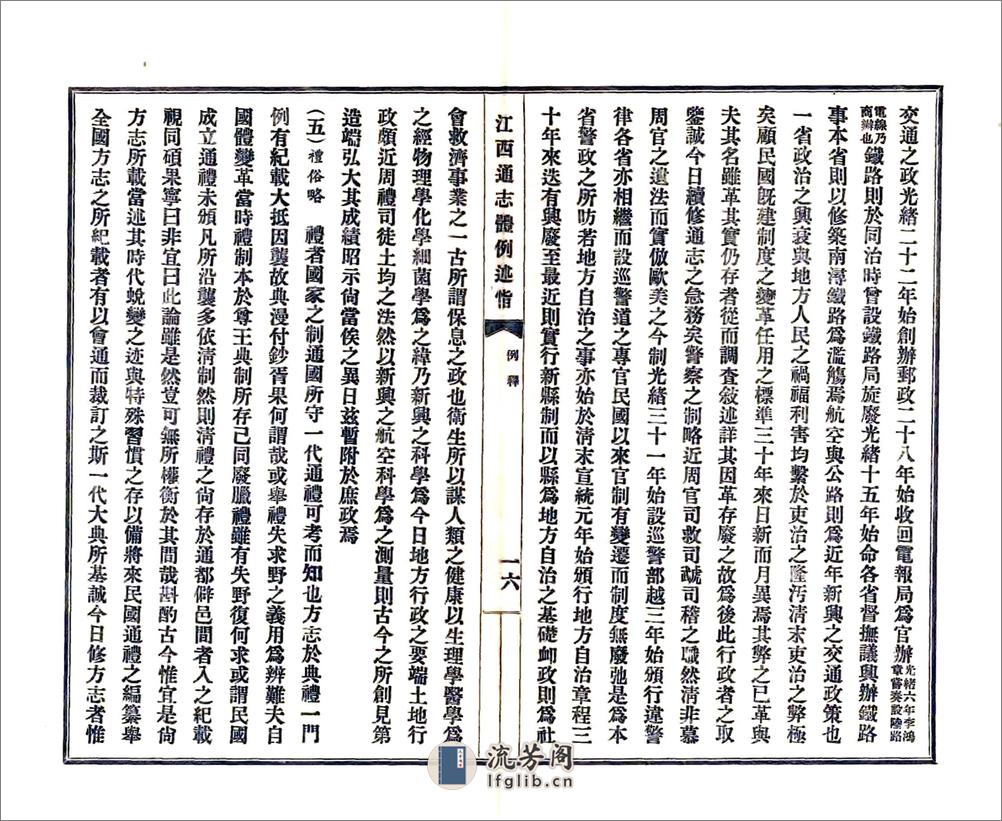 交通之政光緒二十二年始創辦郵政二十八年始收回電報局為官辦光緒六年李鴻章嘗奏設陸路
電線乃商辦也鐵路則於同治時曾設鐵路局旋廢光緒十五年始命各省督撫議興辦鐵路
事本省則以修築南潯鐵路為濫觴焉航空與公路則為近年新興之交通政策也
一省政治之興衰與地方人民之禍福利害均繫於吏治之隆汚清末吏治之弊極
矣顧民國旣建制度之變革任用之標準三十年來日新而月異焉其弊之已革與
夫其名雖革其實仍存者從而調査敘述詳其因革存廢之故為後此行政者之取
鑒誠今日續修通志之急務矣警察之制略近周官司救司虣司稽之職然清非慕
周官之遺法而實倣歐美之今制光緒三十一年始設巡警部越三年始頒行違警
律各省亦相繼而設巡警道之專官民國以來官制有變遷而制度無廢弛是為本
省警政之所昉若地方自治之事亦始於清末宣統元年始頒行地方自治章程三
十年來迭有興廢至最近則實行新縣制而以縣為地方自治之基礎卹政則為社
江西通志體例述恉
例釋
一六
會救濟事業之一古所謂保息之政也衛生所以謀人類之健康以生理學醫學為
之經物理學化學細菌學為之緯乃新興之科學為今日地方行政之要端土地行
政頗近周禮司徒土均之法然以新興之航空科學為之測量則古今之所創見第
造端弘大其成績昭示尙當俟之異日玆暫附於庶政焉
（五）禮俗略　禮者國家之制通國所守一代通禮可考而知也方志於典禮一門
例有紀載大抵因襲故典漫付鈔胥果何謂哉或舉禮失求野之義用為辨難夫自
國體變革當時禮制本於尊王典制所存已同廢臘禮雖有失野復何求或謂民國
成立通禮未頒凡所沿襲多依清制然則清禮之尙存於通都僻邑間者入之紀載
視同碩果寧曰非宜曰此論雖是然豈可無所權衡於其間哉斟酌古今惟宜是尙
方志所載當述其時代蛻變之迹與特殊習慣之存以備將來民國通禮之編纂舉
全國方志之所紀載者有以會通而裁訂之斯一代大典所基誠今日修方志者惟
流芳阁
lfglib.cn